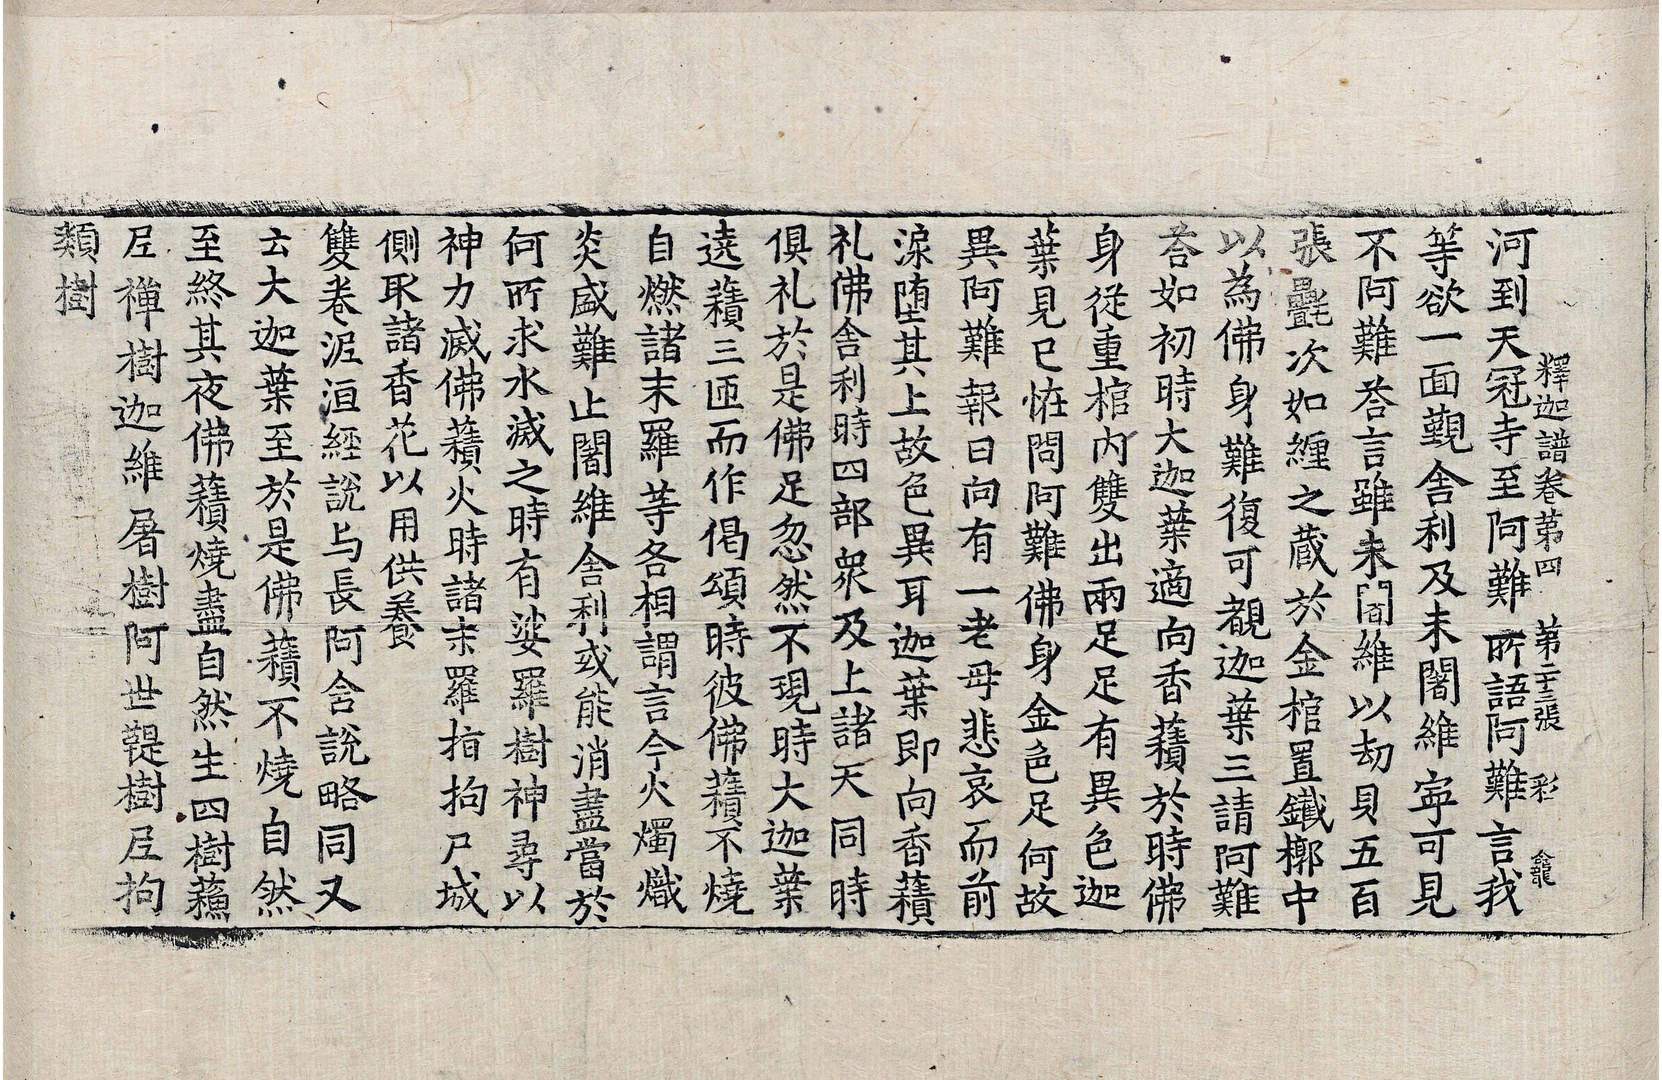 釋迦譜卷第四　第二十三張　彩　龕
河到天冠寺至阿難所語阿難言我
等欲一面覲舍利及未闍維寧可見
不阿難荅言雖未闍維以劫貝五百
張疊次如纏之蔵於金棺置鐵槨中
以為佛身難復可覩迦葉三請阿難
荅如初時大迦葉適向香䕸於時佛
身從重棺內雙出兩足足有異色迦
葉見已恠問阿難佛身金色足何故
異阿難報曰向有一老母悲哀而前
淚堕其上故色異耳迦葉即向香䕸
礼佛舍利時四部眾及上諸天同時
俱礼於是佛足忽然不現時大迦葉
遶䕸三匝而作偈頌時彼佛䕸不燒
自燃諸末羅等各相謂言今火燭熾
炎盛難止闍維舍利或能消盡當於
何所求水滅之時有娑羅樹神尋以
神力滅佛䕸火時諸末羅指拘尸城
側取諸香花以用供養
雙卷泥洹經說与長阿含說略同又
云大迦葉至於是佛䕸不燒自然
至終其夜佛䕸燒盡自然生四樹蘓
尼禪樹迦維屠樹阿世鞮樹尼拘
類樹